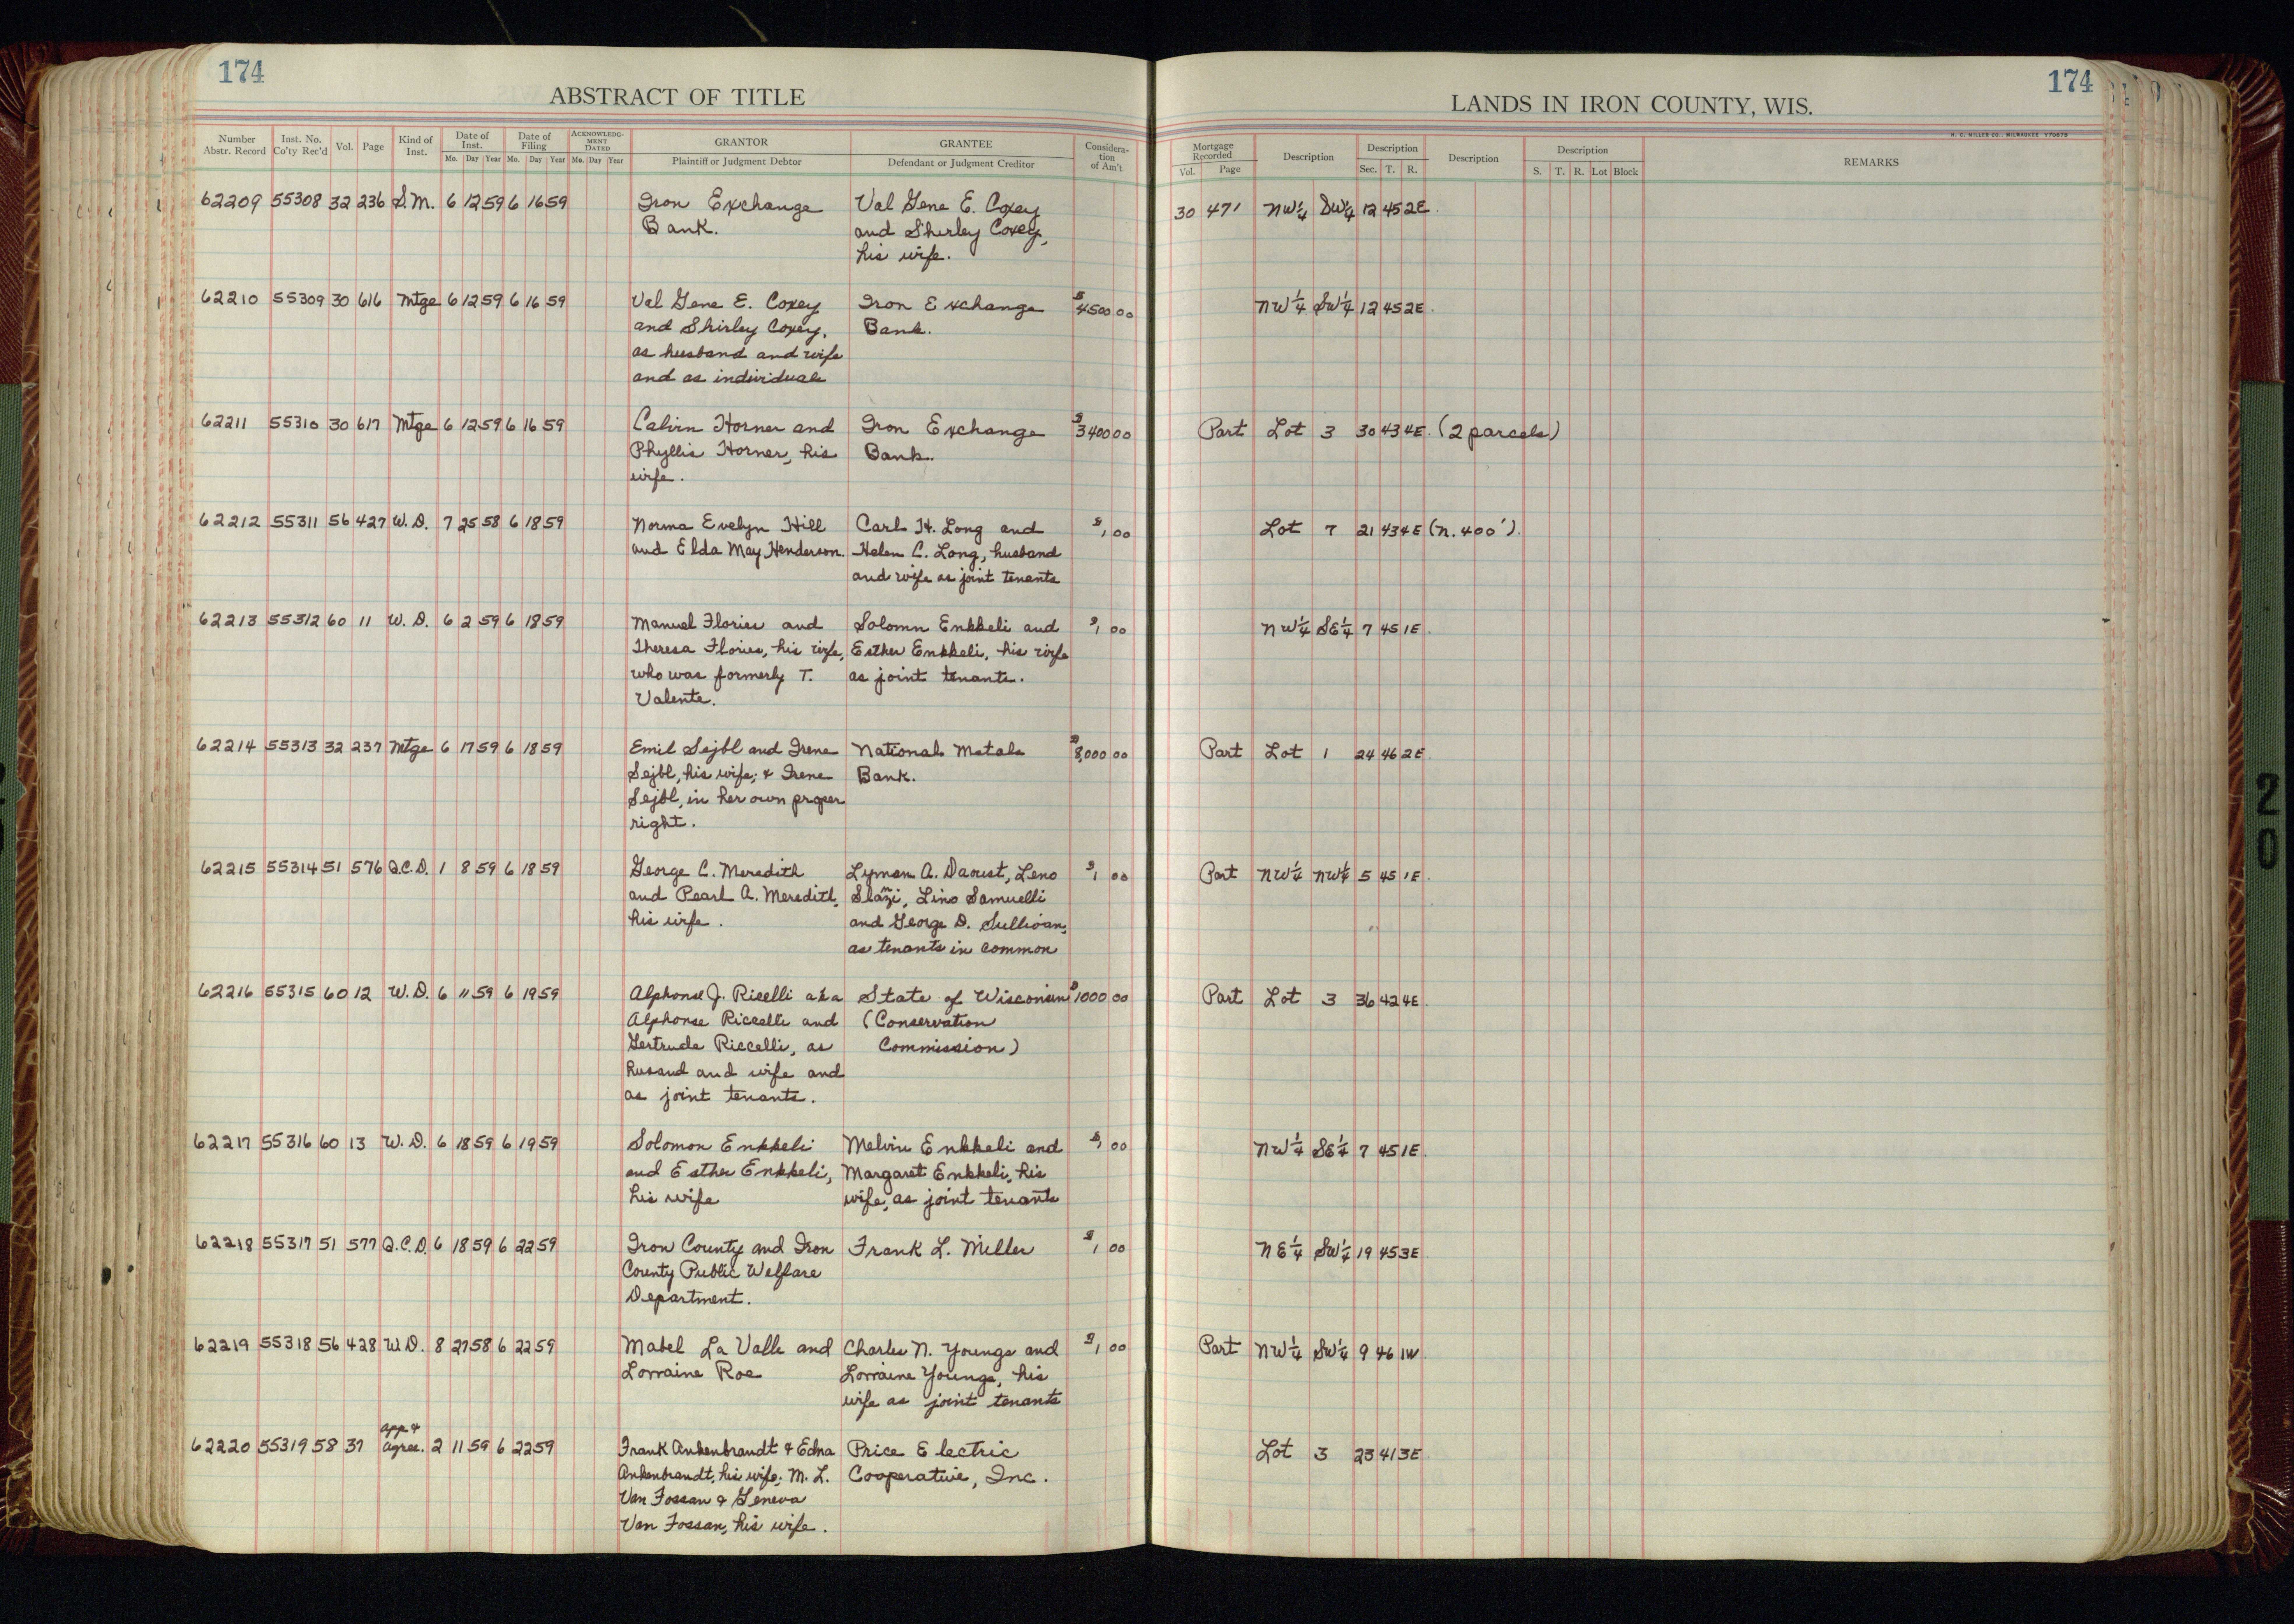 174
ABSTRACT OF TITLE
Number Abstr. Record | Inst. No. Co'ty Rec'd | Vol. | Page | Kind of Inst. | Date of Inst. Mo. Day Year | Date of Filing Mo. Day Year | ACKNOWLEDGMENT DATED Mo. Day Year | GRANTOR Plaintiff or Judgment Debtor | GRANTEE Defendant or Judgment Creditor | Consideration of Am't
174
LANDS IN IRON COUNTY, WIS.
H. C. MILLER CO., MILWAUKEE Y70875
Mortgage Recorded Vol. Page | Description | Description Sec. T. R. | Description | Description S. T. R. Lot Block | REMARKS
62209 55308 32 236 S.M. 6 12 59 6 16 59 Iron Exchange Val Gene E. Coxey 30 471 NW¼ SW¼ 12 45 2E.
Bank. and Shirley Coxey,
his wife.
62210 55309 30 616 Mtge 6 12 59 6 16 59 Val Gene E. Coxey Iron Exchange $4500 00 NW¼ SW¼ 12 45 2E.
and Shirley Coxey, Bank.
as husband and wife
and as individuals
62211 55310 30 617 Mtge 6 12 59 6 16 59 Calvin Horner and Iron Exchange $3400 00 Part Lot 3 30 43 4E. (2 parcels)
Phyllis Horner, his Bank.
wife.
62212 55311 56 427 W. D. 7 25 58 6 18 59 Norma Evelyn Hill Carl H. Long and $1 00 Lot 7 21 43 4E (N. 400').
and Elda May Henderson. Helen C. Long, husband
and wife as joint tenants
62213 55312 60 11 W. D. 6 2 59 6 18 59 Manuel Flories and Solomn Enkkeli and $1 00 NW¼ SE¼ 7 45 1E.
Theresa Flories, his wife, Esther Enkkeli, his wife
who was formerly T. as joint tenants.
Valente.
62214 55313 32 237 Mtge 6 17 59 6 18 59 Emil Sejbl and Irene National Metals $8,000 00 Part Lot 1 24 46 2E.
Sejbl, his wife; & Irene Bank.
Sejbl, in her own proper
right.
62215 55314 51 576 Q.C.D. 1 8 59 6 18 59 George C. Meredith Lyman A. Daoust, Leno $1 00 Part NW¼ NW¼ 5 45 1E.
and Pearl A. Meredith, Lino Samuelli
his wife. and George D. Sullivan,
as tenants in common
62216 55315 60 12 W. D. 6 11 59 6 19 59 Alphonse J. Ricelli aka State of Wisconsin $1000 00 Part Lot 3 36 42 4E.
Alphonse Riccelli and (Conservation
Gertrude Riccelli, as Commission)
husand and wife and
as joint tenants.
62217 55316 60 13 W. D. 6 18 59 6 19 59 Solomon Enkkeli Melvin Enkkeli and $1 00 NW¼ SE¼ 7 45 1E.
and Esther Enkkeli, Margaret Enkkeli, his
his wife wife, as joint tenants
62218 55317 51 577 Q.C.D. 6 18 59 6 22 59 Iron County and Iron Frank L. Miller $1 00 NE¼ SW¼ 19 45 3E
County Public Welfare
Department.
62219 55318 56 428 W.D. 8 27 58 6 22 59 Mabel La Valle and Charles N. Youngs and $1 00 Part NW¼ SW¼ 9 46 1W.
Lorraine Roe Lorraine Youngs, his
wife as joint tenants
62220 55319 58 37 App & Agree. 2 11 59 6 22 59 Frank Ankenbrandt & Edna Price Electric Lot 3 23 41 3E.
Ankenbrandt, his wife; M. L. Cooperative, Inc.
Van Fossan & Geneva
Van Fossan, his wife.
20